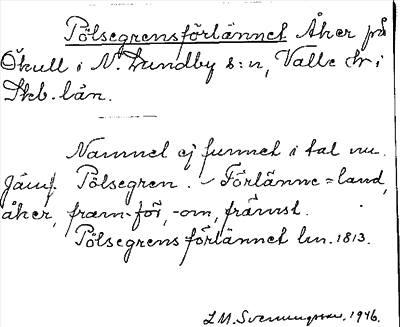 Pölsegrensförlännet Åker på
Ökull i N. Lundby s:n, Valle hr i
Skb. län.
Namnet ej funnet i tal nu.
Jämf. Pölsegren. – Förlänne = land,
åker, fram-för, -om, främst.
Pölsegrens förlännet lm. 1813.
L.M. Svenungsson, 1946.